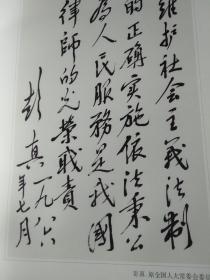 维护社会主义法制
的正确实施依法秉公
為人民服務是我國
律師的光榮職責
彭真一九八六
年七月
彭真 原全国人大常委会委员